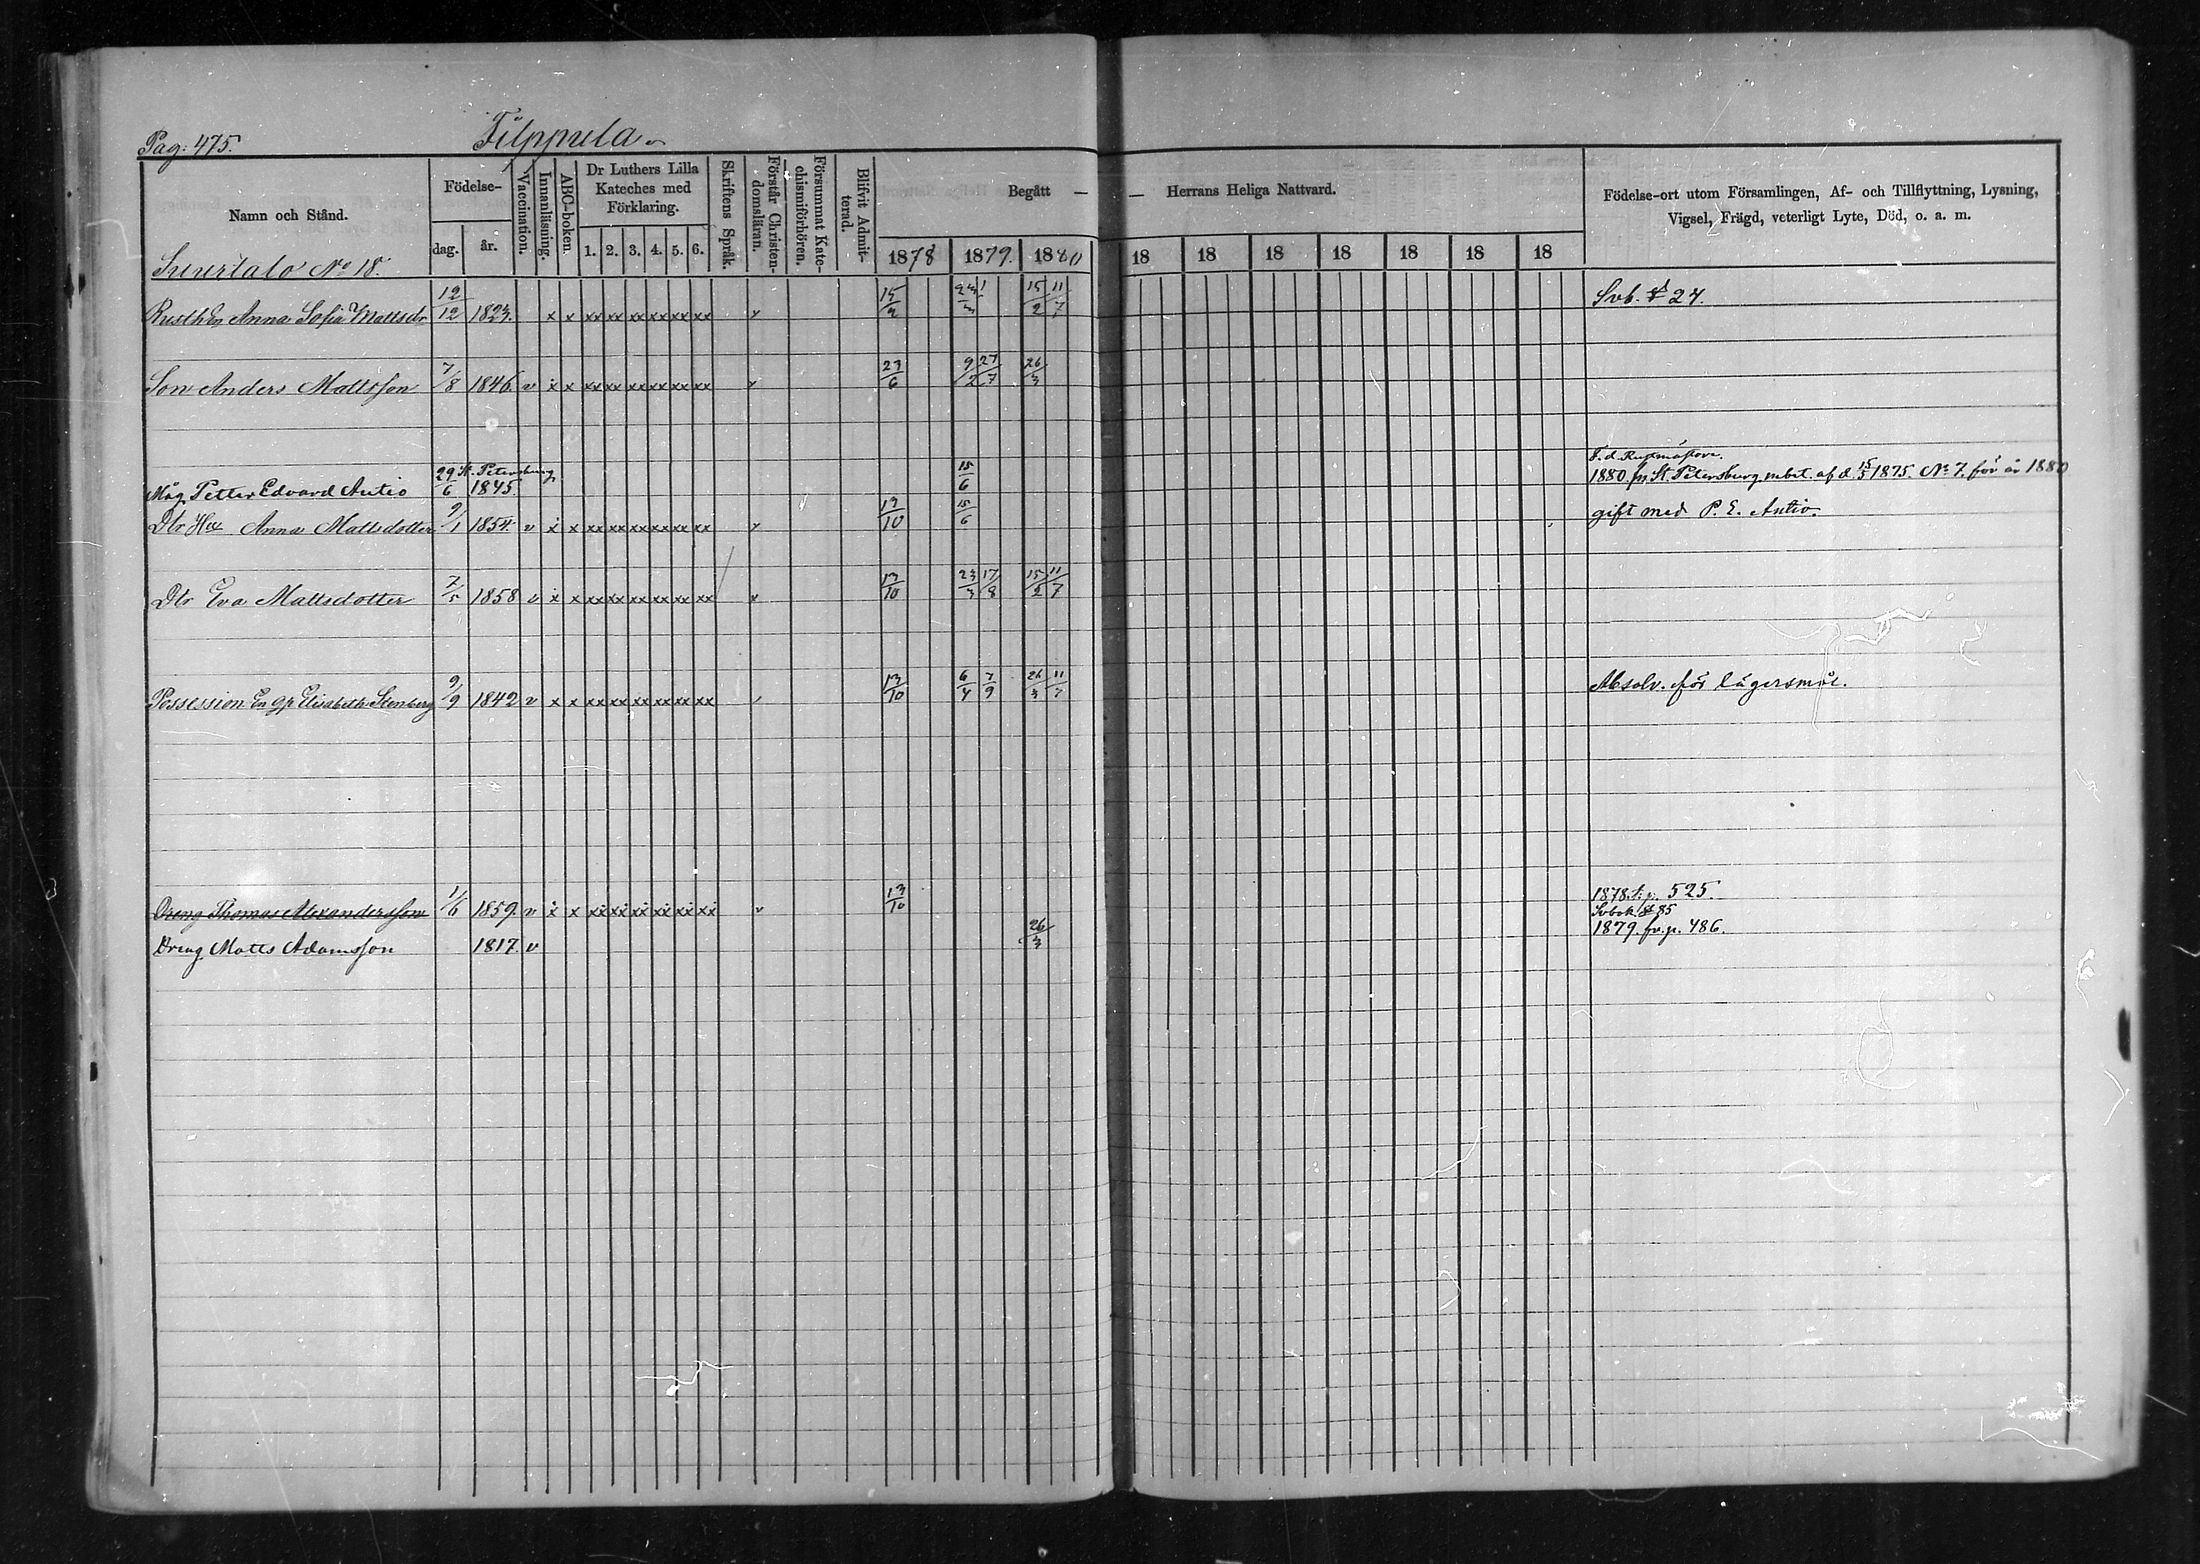 Pag: 475. Filppula
Namn och Stånd.
Födelse-
dag. år.
Vaccination.
Innanläsning.
ABC-boken.
Dr Luthers Lilla
Kateches med
Förklaring.
1. 2. 3. 4. 5. 6.
Skriftens Språk.
Förstår Christen-
domsläran.
Försummat Kate-
chismiförhören.
Blifvit Admit-
terad.
Begått — — Herrans Heliga Nattvard.
1878 1879. 1880 18 18 18 18 18 18 18
Födelse-ort utom Församlingen, Af- och Tillflyttning, Lysning,
Vigsel, Frägd, veterligt Lyte, Död, o. a. m.
Suurtalo No 18.
Anna Sofia Mattsdr 12/12 1823. x x xx xx xx xx xx xx v 15/2 15/2 11/7 27.
Son Anders Mattsson 7/8 1846. v x x xx xx xx xx xx xx v 23/6 9/2 27/7 26/3
St. Petersburg
Måg Petter Edvard Antio 29/6 1845. 15/6 1880. fr St. Petersburg m. bet. af d. 15/5 1875. No 7. för år 1880
Dtr Anna Mattsdotter 9/1 1854. v x x xx xx xx xx xx xx v 13/10 15/6 gift med P. E. Antio.
Dtr Eva Mattsdotter 7/5 1858 v x x xx xx xx xx xx xx v 13/10 23/3 17/8 15/2 11/7
Possession Elisabeth Stenberg 9/9 1842 v x x xx xx xx xx xx xx v 13/10 6/4 7/9 26/3 11/7 Absolv. för lägersmål.
Dreng Thomas Alexandersson 1/6 1859. v x x xx xx xx xx xx xx v 13/10 1878. t. p. 525.
85
Dreng Matts Adamsson 1817. v 26/3 1879. fr. p. 486.